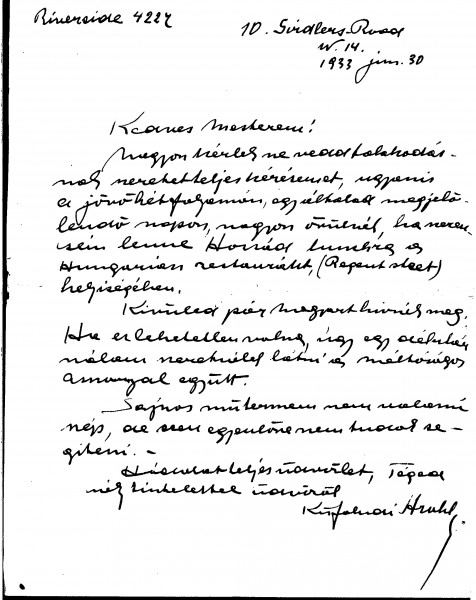 Riverside 4227
10. Girdlers Road
W. 14.
1933 jun. 30
Kedves Mesterem!
Nagyon kérlek ne vedd tolakodás-
nak szeretetteljes kérésemet, ugyanis
a jövő hét folyamán, egy általad megjelö-
lendő napon, nagyon örülnék, ha szeren-
csém lenne Hozzád lunchre a
Hungarian restaurant (Regent street)
helyiségében.
Kívüled pár magyart hívnék meg.
Ha ez lehetetlen volna, úgy egy délután
nálam szeretnélek látni a méltóságos
asszonnyal együtt.
Sajnos műtermem nem valami
szép, de ezen egyenlőre nem tudok se-
gíteni. -
tiszteletteljes üdvözlet, Téged
tisztelettel üdvözöl